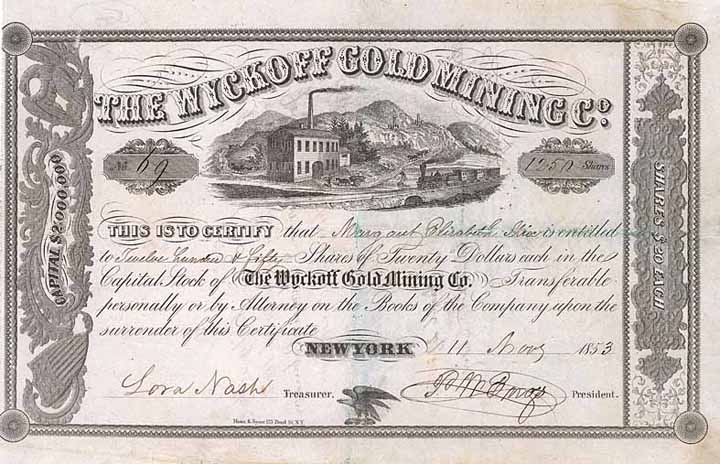 THE WYCKOFF GOLD MINING Co.
No. 69
1250 Shares
CAPITAL $2,000,000
SHARES $20 EACH
THIS IS TO CERTIFY that Margaret Elizabeth is entitled
to Twelve hundred & Fifty Shares of Twenty Dollars each in the
Capital Stock of The Wyckoff Gold Mining Co. Transferable
personally or by Attorney on the Books of the Company upon the
surrender of this Certificate
NEW YORK 11 Nov 1853
Lora Nash Treasurer. President.